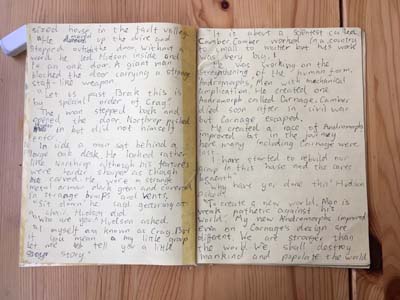 sized house in the fault valley.
"He up the drive and
stepped outside the door. Without a
word he led Hudson inside and
to an oak door. A giant man
blocked the door carrying a strange
staff-like weapon.
"Let us past Brak this is
by special order of Crag."
The man stepped back and
opened the door. Northrop guided
in but did not himself
enter.
Inside a man sat behind a
large oak desk. He looked rather
like Northrop although his features
were far sharper as though
not covered. He wore a strange
metal armour black green and covered
in strange bumps and vents.
"Sit down he said gesturing at
a chair. Hudson did.
"Who are you" Hudson asked.
"I myself am known as Crag. But
if you mean my little group
let me tell you a little
story
"It is about a scientist called
Camber. Camber worked in a country
to small to matter but his work
was very big.
He was working on the
strengthening of the human form,
Andromorphs, Men with mechanical
implication. He created one
Andromorph called Carnage. Camber
died soon after in civil war
but Carnage escaped.
He created a race of Andromorphs
improved as in the army
here many including Carnage were
I have started to rebuild our
army in this base and the caves
beneath"
"Why have you done this" Hudson
asked.
"To create a new world. Man is
weak pathetic against his
world. My new Andromorphs improved
even on Carnage's design are
different. We are stronger than
the world. We shall destroy
mankind and populate the world